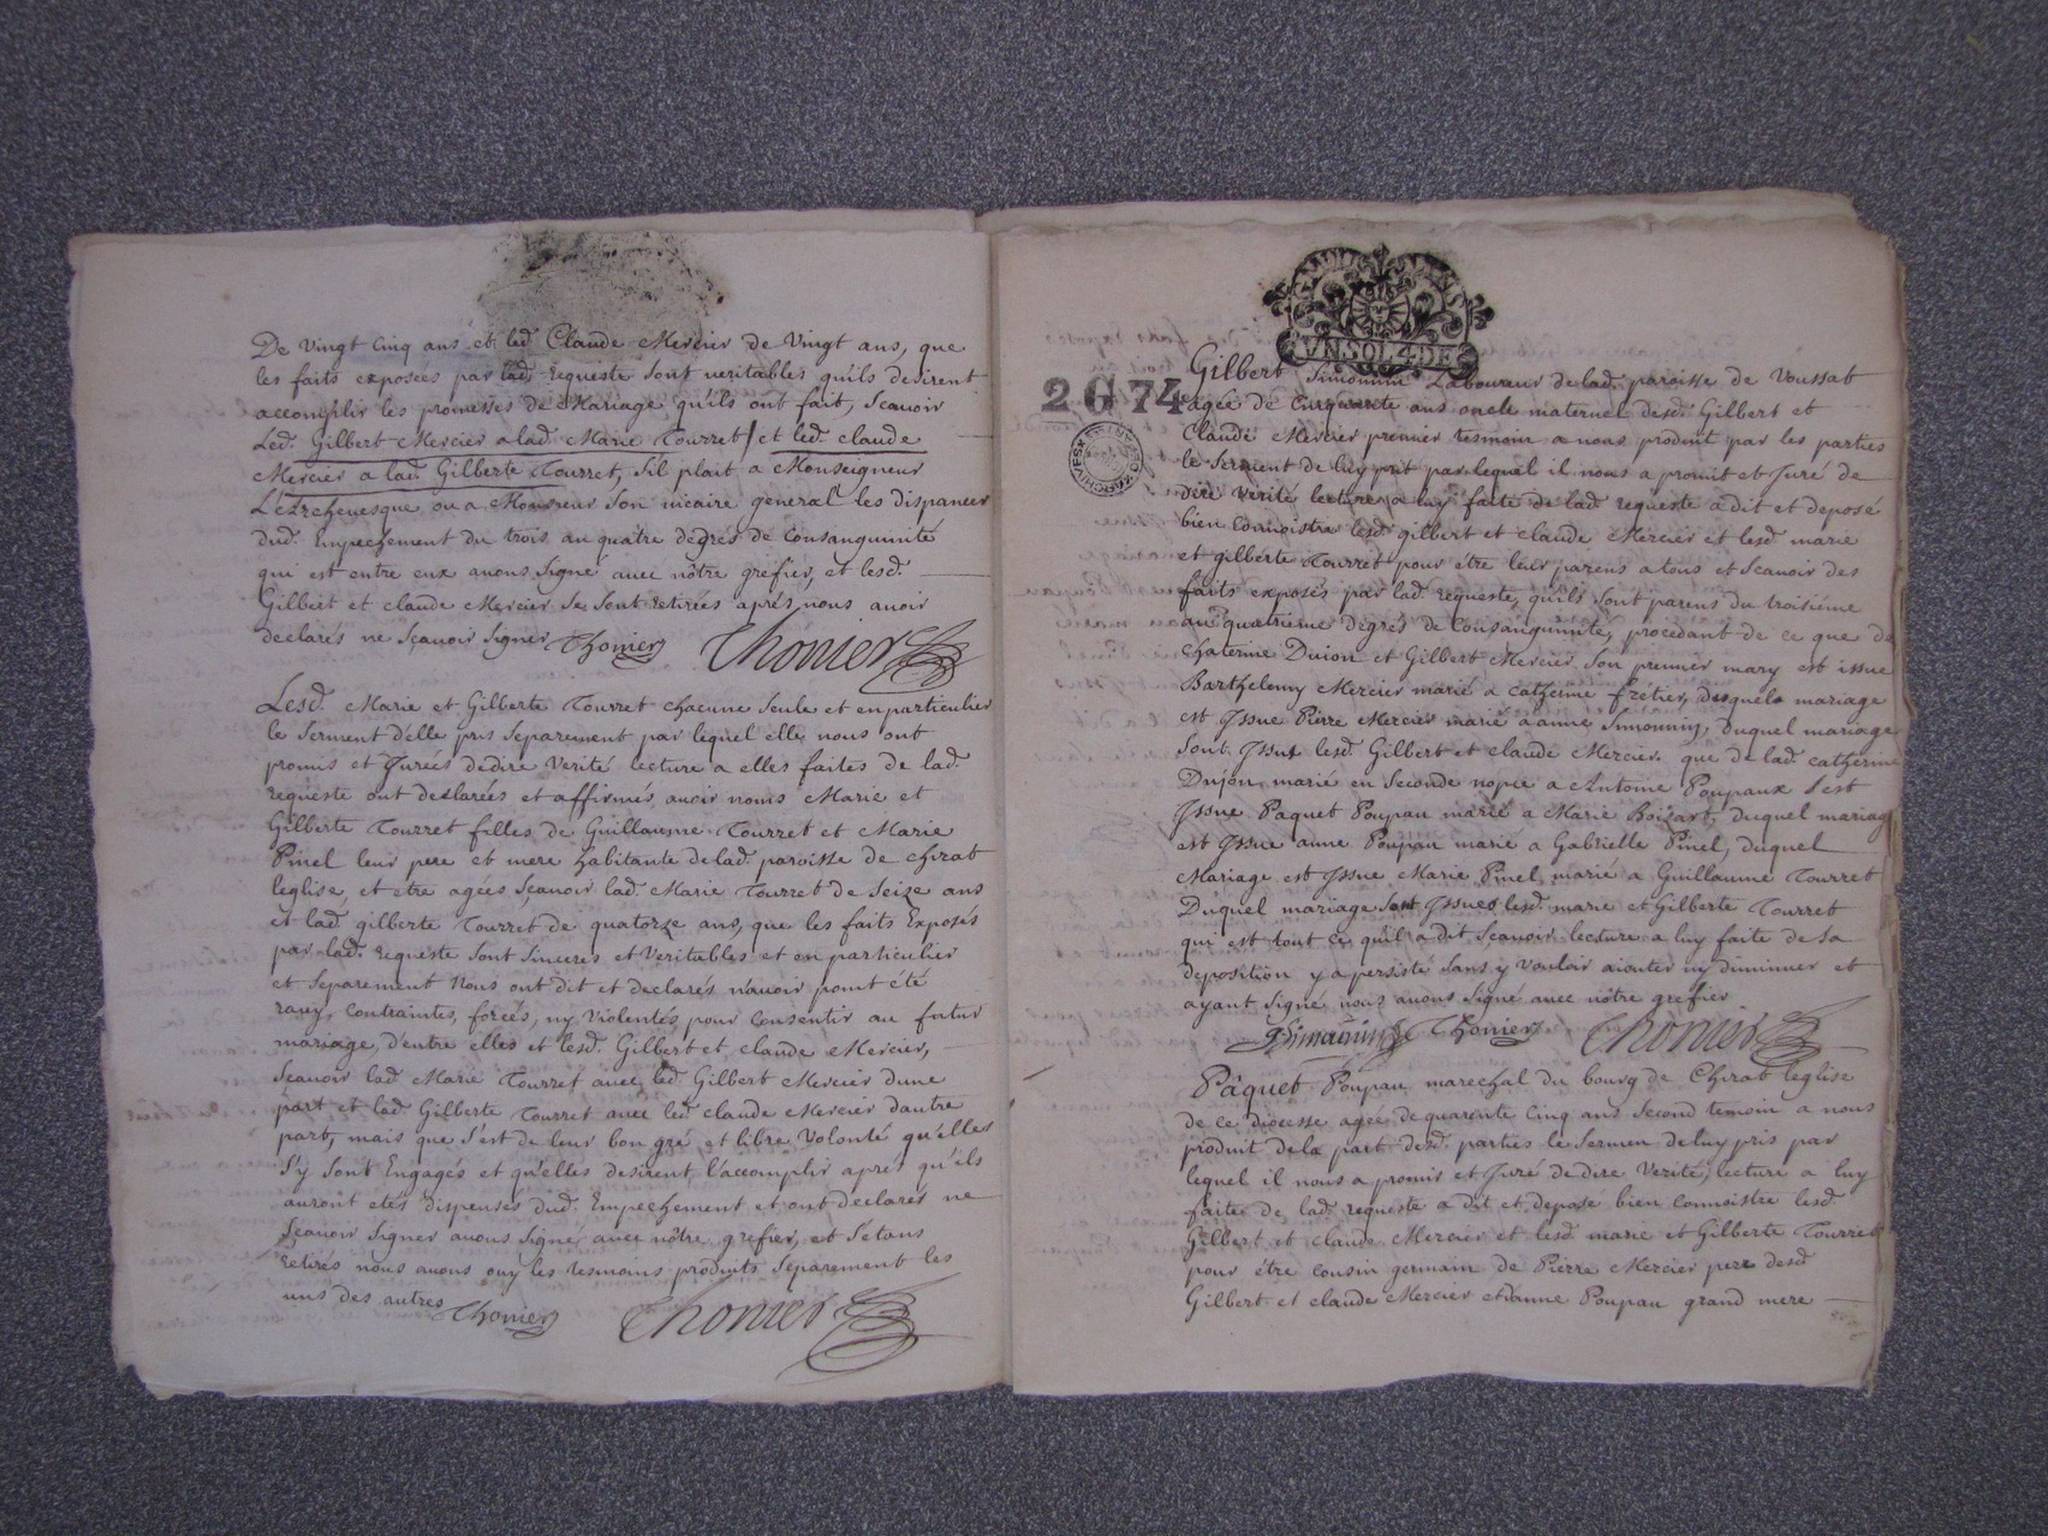 De vingt cinq ans et led. Claude Mercier de vingt ans, que
les faits exposées par lad. requeste sont veritables qu'ils desirent
accomplir les promesses de Mariage qu'ils ont fait, scauoir
Led. Gilbert Mercier a lad. Marie Tourret et led. claude
Mercier a lad. Gilberte Tourret, s'il plait a Monseigneur
L'Archeuesque ou a Monsieur son uicaire general les dispancer
dud. Empechement du trois au quatre degrés de Consanguinité
qui est entre eux auons signé auec nôtre grefier, et lesd.
Gilbert et claude Mercier se sont retirées aprés nous auoir
declarés ne sçauoir signer Thonier Thonier
Lesd. Marie et Gilberte Tourret chacune seule et en particulier
le serment d'elle pris separement par lequel elle nous ont
promis et Jurées dedire verité lecture a elles faites de lad.
requeste ont declarées et affirmés auoir noms Marie et
Gilberte Tourret filles de Guillaume Tourret et Marie
Pinel leur pere et mere habitante delad. paroisse de chirat
leglise, et etre agées sçauoir lad. Marie Tourret de seize ans
et lad. gilberte Tourret de quatorze ans, que les faits Exposés
par lad. requeste sont sinceres et veritables et en particulier
et separement nous ont dit et declarés n'auoir point été
rauy, contraintes, forcés, ny violentés pour consentir au futur
mariage, d'entre elles et lesd. Gilbert et claude Mercier,
scauoir lad. Marie Tourret auec led. Gilbert Mercier dune
part et lad. Gilberte Tourret auec led. claude Mercier dautre
part, mais que s'est de leur bon gré et libre volonté qu'elles
s'y sont Engagés et qu'elles desirent l'accomplir aprés qu'ils
auront etés dispensés dud. Empechement et ont declarés ne
sçauoir signer auons signé auec nôtre grefier, et s'etans
retirés nous auons ouy les tesmoins produits separement les
uns des autres Thonier Thonier
VN SOL 4 DE
2 G 74
ARCHIVES
Gilbert Simonnin Laboureur de lad. paroisse de Voussat
agée de Cinquante ans oncle maternel desd. Gilbert et
Claude Mercier premier tesmoin a nous produit par les parties
le serment de luy prit par lequel il nous a promit et Juré de
dire verité lecture a luy faite de lad. requeste a dit et deposé
bien connoistre lesd. gilbert et claude Mercier et lesd. marie
et gilberte Tourret pour étre leur parens a tous et scauoir des
faits exposés par lad. requeste, qu'ils sont parens du troisiéme
au quatrieme degrés de Consanguinité, procedant de ce que de
Chaterine Duion et Gilbert Mercier son premier mary est issue
Barthelemy Mercier marié a catherine frétier, desquels mariage
est Jssue Pierre Mercier marié a anne Simonnin, duquel mariage
sont Jssus lesd. Gilbert et claude Mercier. que de lad. catherine
Dujon marié en seconde nopce a Antoine Poupaux s'est
Jssue Paquet Poupau marié a Marie Boisart, duquel mariage
est Jssue anne Poupau marié a Gabrielle Pinel, duquel
Mariage est Jssue Marie Pinel marié a Guillaume Tourret
Duquel mariage sont Jssues lesd. marie et Gilberte Tourret
qui est tout ce qu'il a dit sçauoir lecture a luy faite de sa
deposition y a persisté sans y vouloir aiouter ny diminuer et
ayant signé nous auons signé auec nôtre grefier
Simonnin Thonier Thonier
Pâquet Poupau marechal du bourg de Chirat leglise
de ce diocesse agée de quarente cinq ans second temoin a nous
produit dela part desd. parties le sermen deluy pris par
lequel il nous a promis et Juré de dire verité, lecture a luy
faite de lad. requeste a dit et deposé bien connoistre lesd.
Gilbert et claude Mercier et lesd. marie et Gilberte Tourret
pour étre cousin germain de Pierre Mercier pere desd.
Gilbert et claude Mercier et danne Poupau grand mere